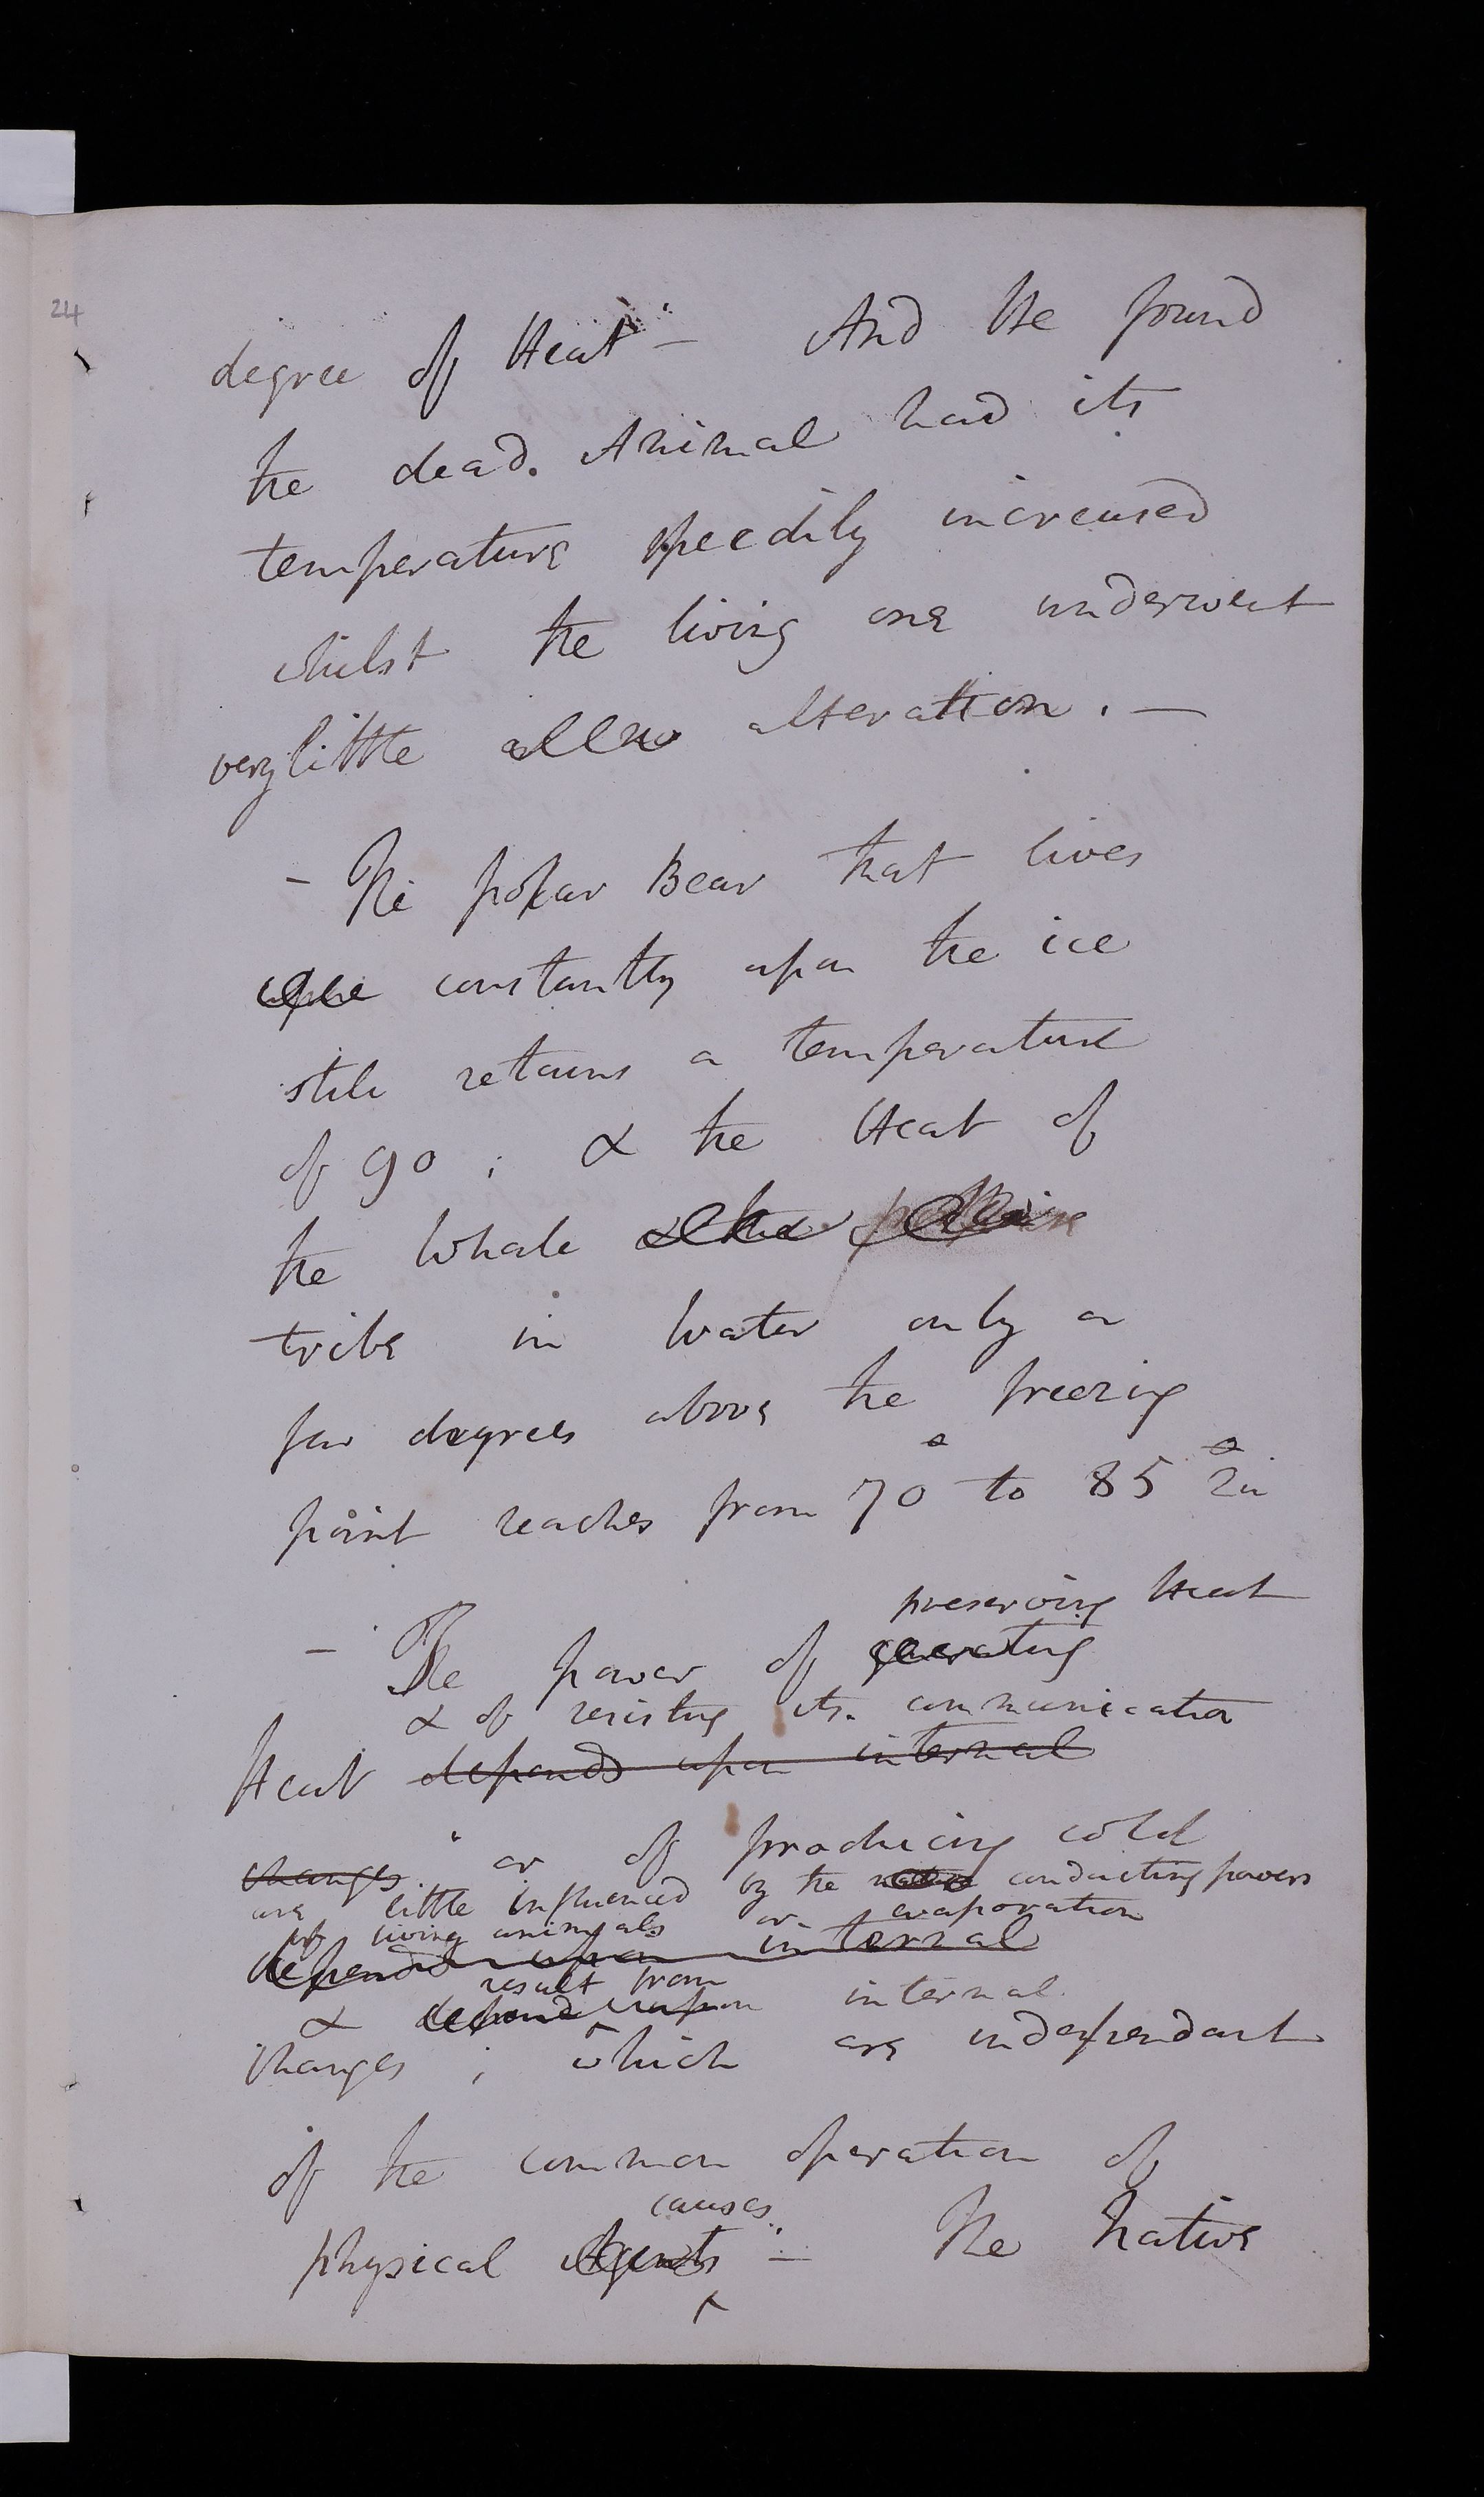 24
degree of Heat – And He found
the dead. Animal had its
temperature speedily increased
whilst the living one underwent
very little alteration. —
– The polar Bear that lives
constantly upon the ice
still retains a temperature
of 90 ; & the Heat of
the Whale
tribe in water only a
few degrees above the freezing
point reaches from 70° to 85°
preserving Heat
– The power of generating
& of resisting its communication
Heat depends upon internal
changes or of producing cold
are little influenced by the conducting powers
of living animals or evaporation
depends upon internal
result from
& depend upon internal
changes ; which are independant
of the common operation of
causes
physical Agents – The native